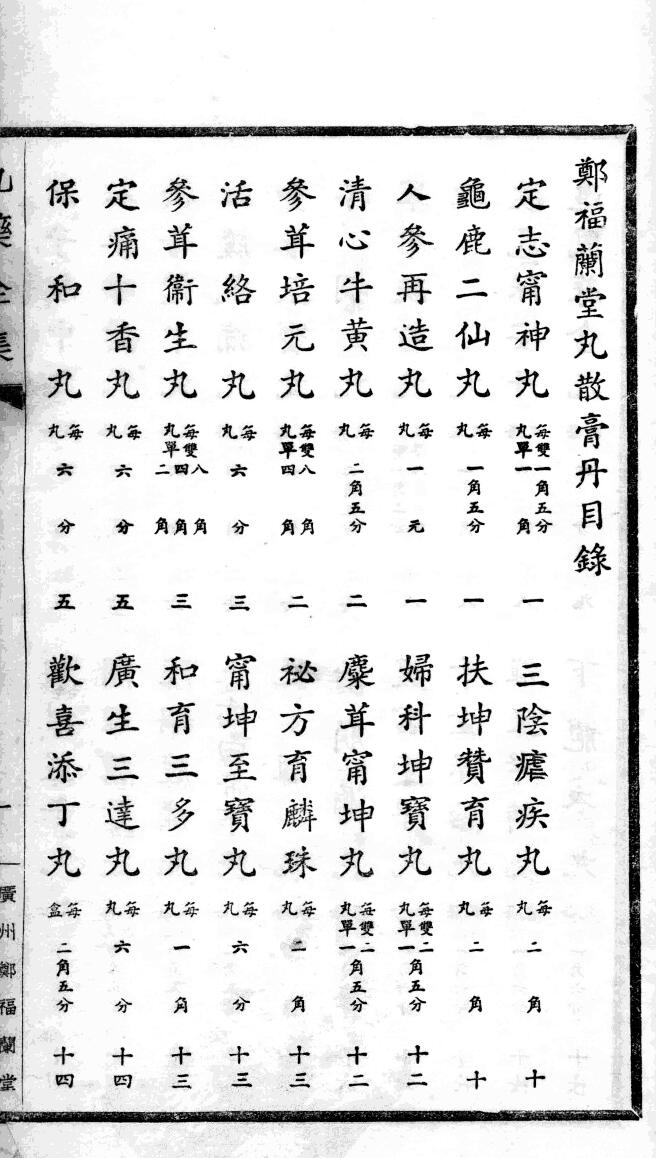 鄭福蘭堂丸散膏丹目錄
定志甯神丸 每丸雙一角五分單一角 一 三陰瘧疾丸 每丸二角 十
龜鹿二仙丸 每丸一角五分 一 扶坤贊育丸 每丸二角 十
人參再造丸 每丸一元 一 婦科坤寶丸 每丸雙二單一角五分 十二
清心牛黄丸 每丸二角五分 二 麋茸甯坤丸 每丸雙二單一角五分 十二
參茸培元丸 每丸雙八角單四角 二 祕方育麟珠 每丸二角 十三
活絡丸 每丸六分 三 甯坤至寶丸 每丸六分 十三
參茸衞生丸 每丸雙單八角四角二角 三 和育三多丸 每丸一角 十三
定痛十香丸 每丸六分 五 廣生三達丸 每丸六分 十四
保和丸 每丸六分 五 歡喜添丁丸 每盒二角五分 十四
丸藥全集 一 廣州鄭福蘭堂